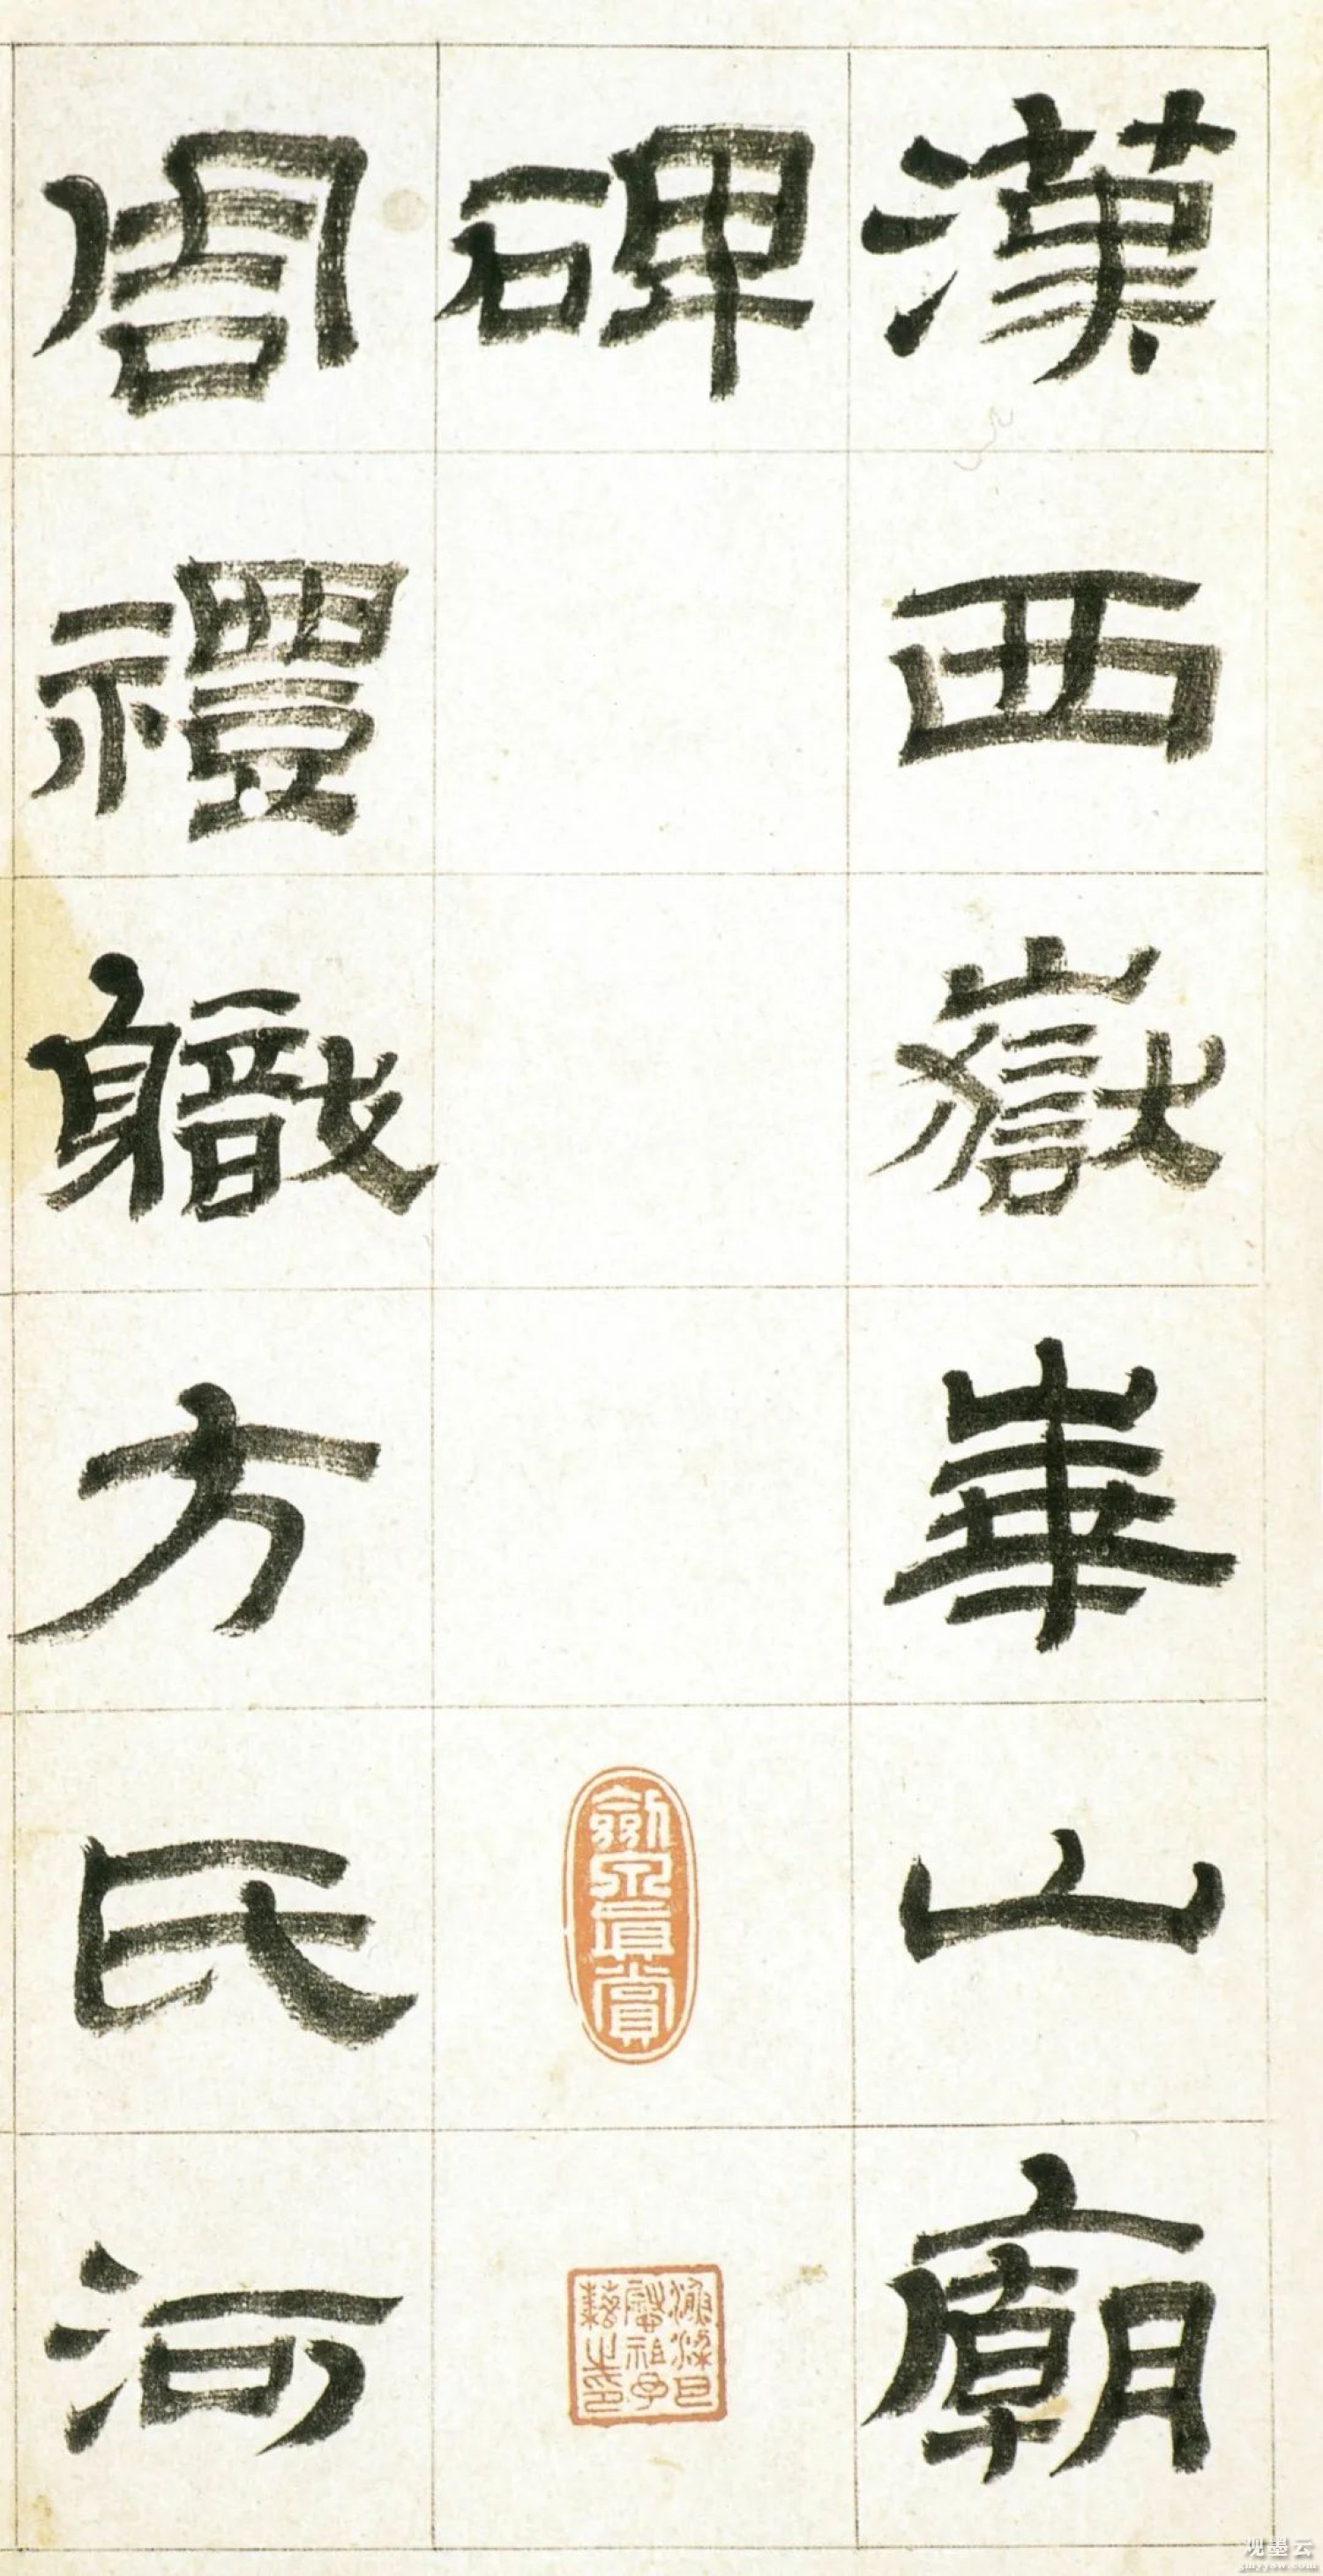 漢西嶽華山廟
碑
周禮職方氏河
劍泉真賞
观墨云